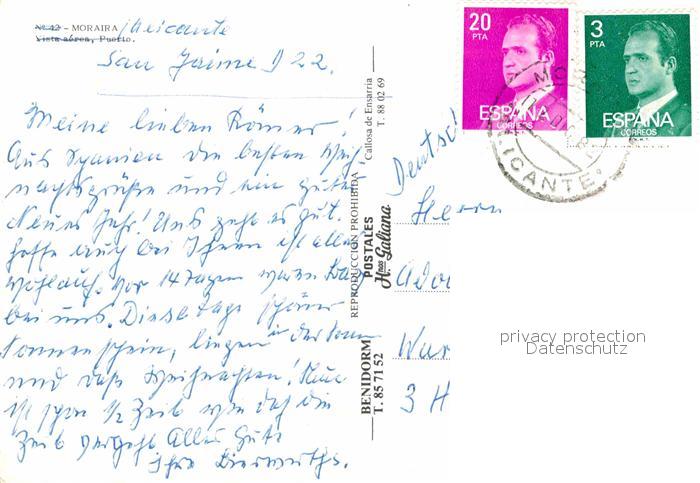 Nº 42 - MORAIRA /Alicante
Vista aérea, Puerto.
San Jaime D 22.
Meine lieben Römer!
Aus Spanien die besten Weih-
nachtsgrüße und ein gutes
Neues Jahr! Uns geht es gut.
hoffe auch bei Ihnen ist alles
wohlauf. Vor 14 Tagen waren
bei uns. Diese Tage schöner
Sonnenschein, liegen in der Sonne
und das Weihnachten! Nun
ist schon ½ Zeit um daß die
Zeit vergeht Alles Gute
Ihre Bierwirths.
REPRODUCCION PROHIBIDA
Callosa de Ensarria
T. 88 02 69
POSTALES
Hnos Galiana
BENIDORM
T. 85 71 52
20
PTA
ESPAÑA
CORREOS
3
PTA
ESPAÑA
CORREOS
ALICANTE
Deutschl
Herrn
Ado
Wur
3 H
privacy protection
Datenschutz